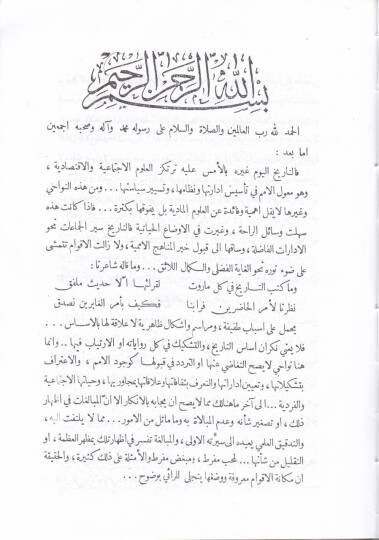 بسم الله الرحمن الرحيم
الحمد لله رب العالمين والصلاة والسلام على رسوله محمد وآله وصحبه اجمعين
اما بعد :
فالتاريخ اليوم غيره بالأمس عليه ترتكز العلوم الاجتماعية والاقتصادية ،
وهو معول الامم في تأسيس ادارتها ونظامها، وتسيير سياستها... ومن هذه النواحي
وغيرها لا يقل اهمية وفائدة عن العلوم المادية بل يفوقها بكثرة... فاذا كانت هذه
سهلت وسائل الراحة ، وغيرت في الاوضاع الحياتية فالتاريخ سير الجماعات نحو
الادارات الفاضلة ، وساقها الى قبول خير المناهج الاممية ، ولا زالت الاقوام تتمشى
على ضوء نوره نحو الغاية الفضلى والكمال اللائق... وما قاله شاعرنا :
وما كتب التاريخ في كل ماروت لقرائها الا حديث ملفق
نظرنا لأمر الحاضرين فرابنا فكيف بأمر الغابرين نصدق
يحمل على اسباب طفيفة ، ومراسم واشكال ظاهرية لا علاقة لها بالاساس...
فلا يعني نكران اساس التاريخ ، والتشكيك في كل رواياته او الارتياب فيها .. وانما
هنا نواحي لا يصح التغاضي عنها او التردد في قبولها كوجود الامم ، والاعتراف
بتشكيلاتها ، وتعيين اداراتها والتعرف بثقافاتها وعلاقاتها بمجاوريها ، وحياتها الاجتماعية
والفردية ... الى آخر ما هنالك مما لا يصح ان يجابه بالانكار الا ان المبالغات في اظهار
ذلك ، او تصغير شأنه وعدم المبالاة به وما ماثل من الامور... مما لا يلتفت اليه ،
والتدقيق العلمي يعيد الى سيرته الاولى ، والمبالغة تفسر في اظهار تلك بمظهر العظمة ، او
التقليل من شأنها ... لمحب مفرط ، ومبغض مفرط والأمثلة على ذلك كثيرة ، والحقيقة
ان مكانة الاقوام معروفة ووضعها يتجلى للرائي بوضوح ...